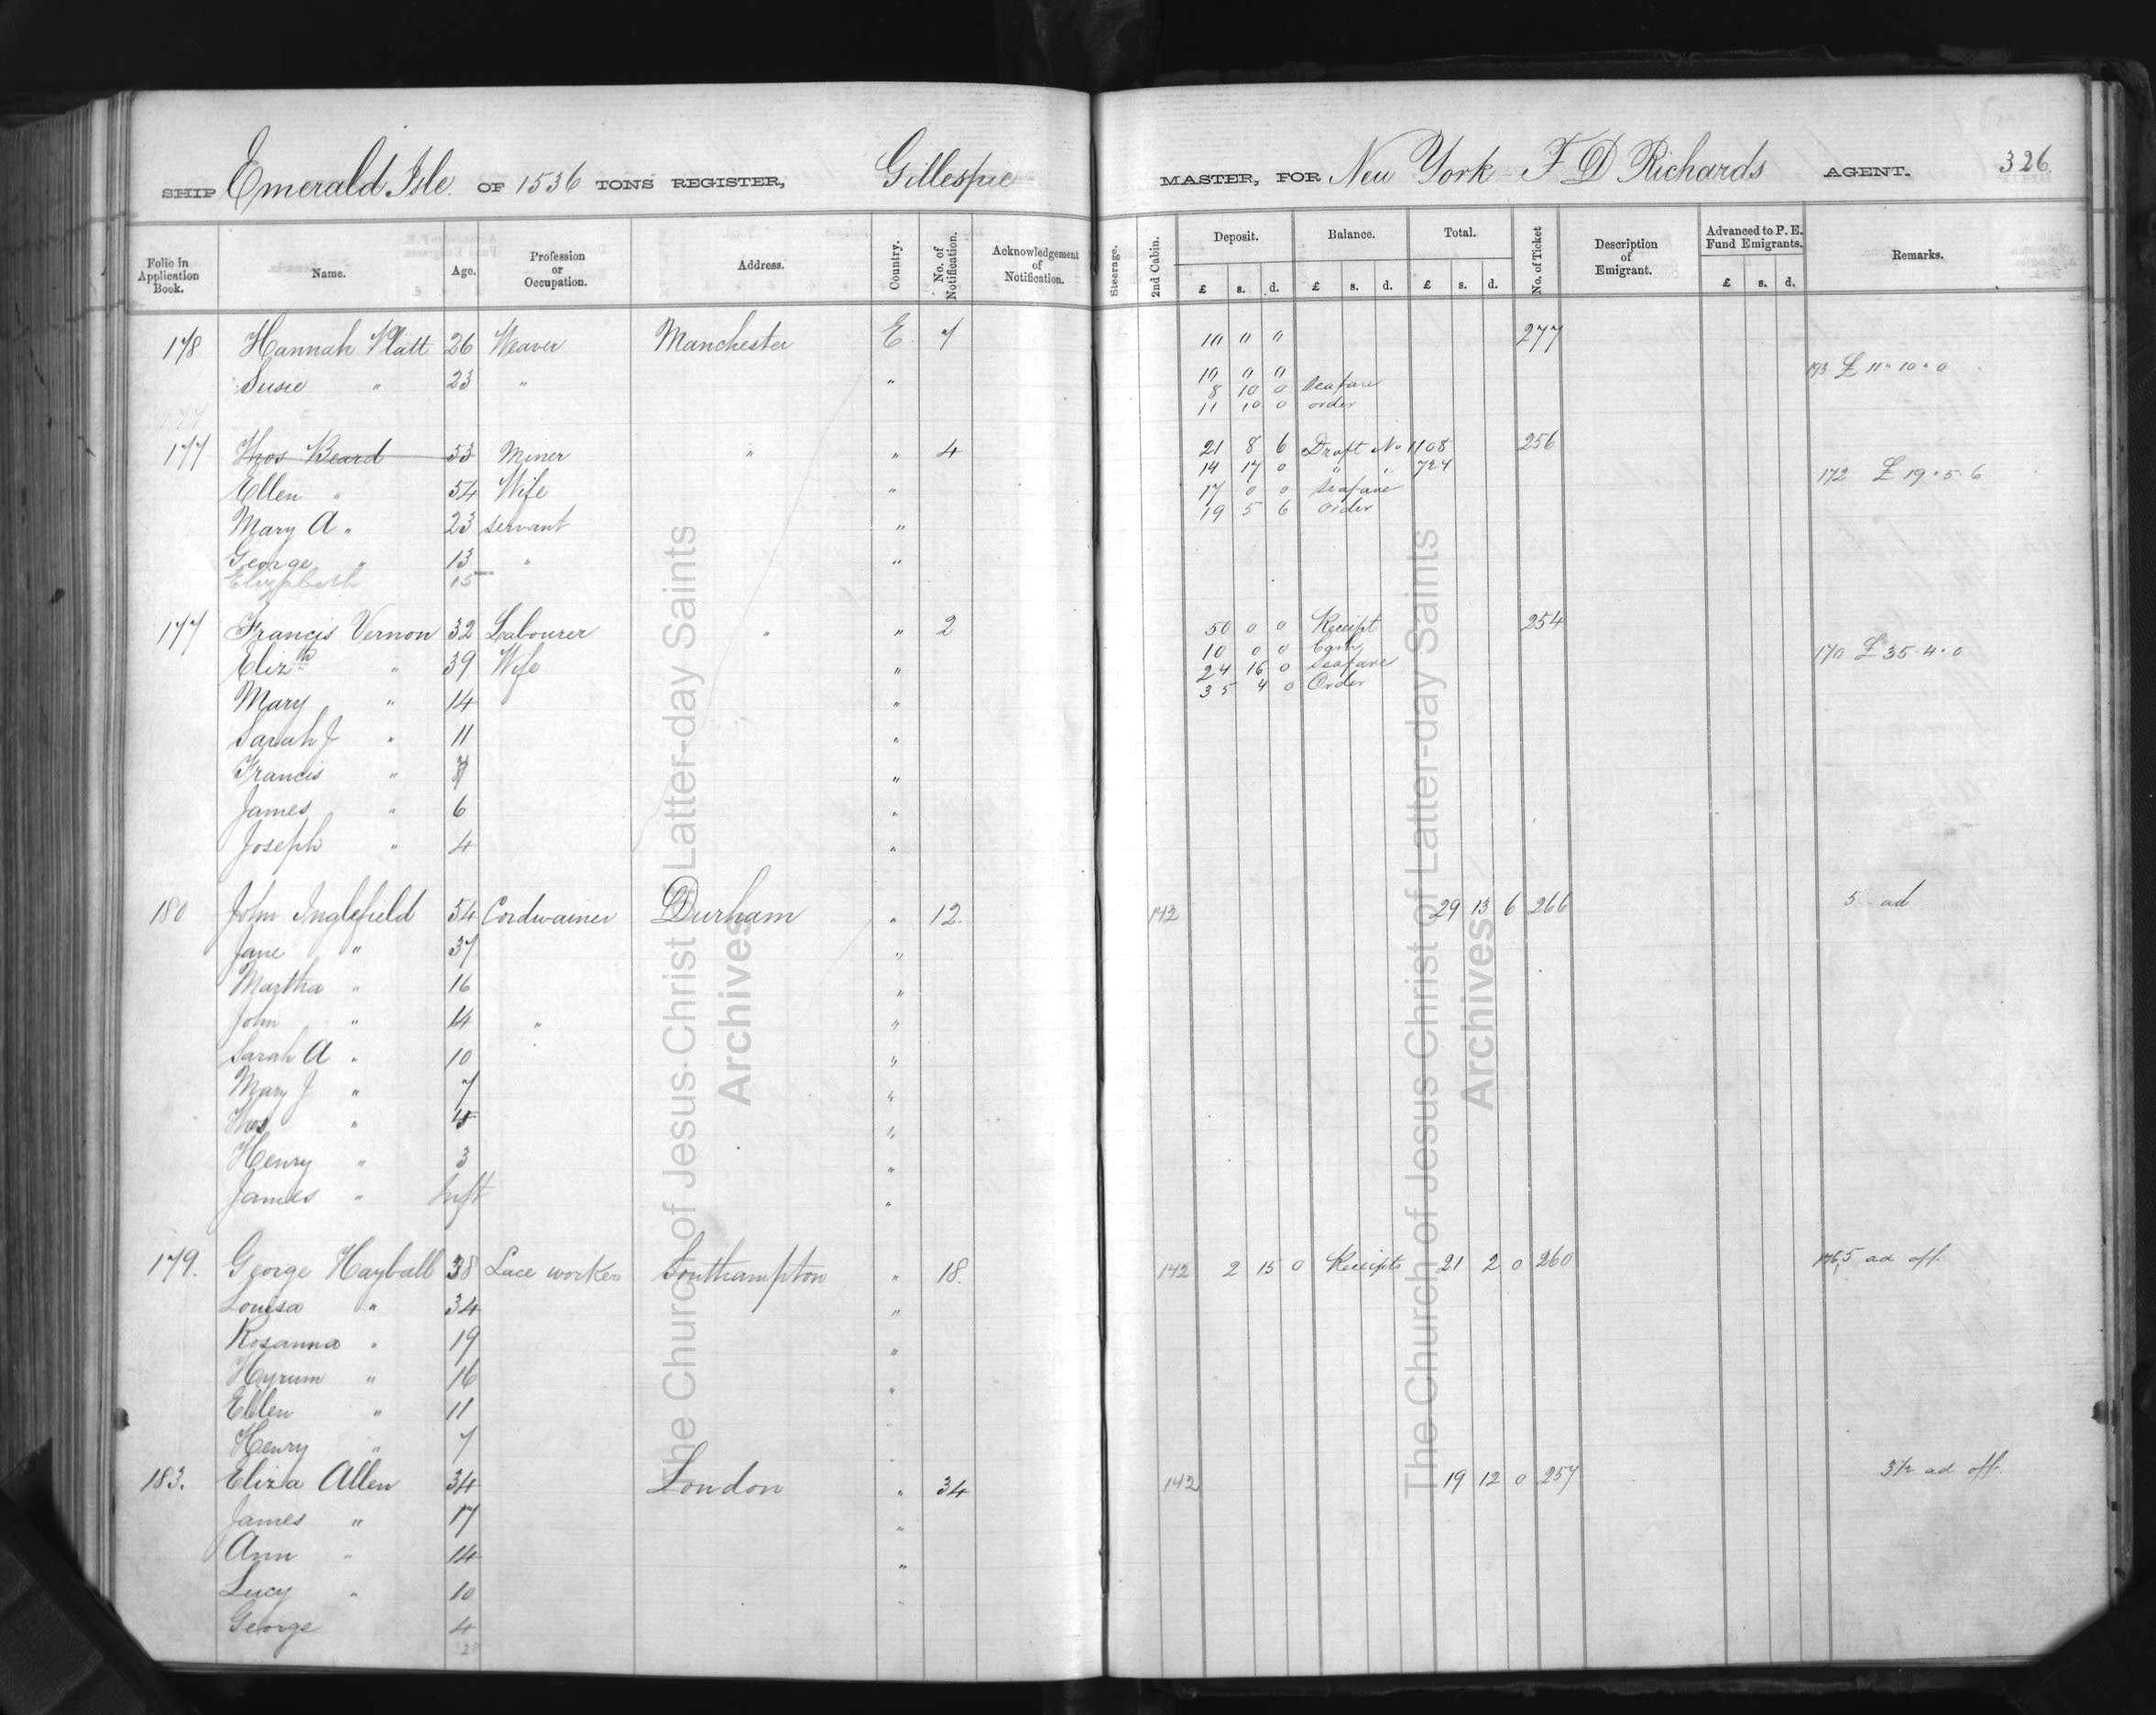 SHIP Emerald Isle OF 1536 TONS REGISTER, Gillespie MASTER, FOR New York F D Richards AGENT. 326
Folio in Application Book. Name. Age. Profession or Occupation. Address. Country. No. of Notification. Acknowledgement of Notification. Steerage. 2nd Cabin. Deposit. £ s. d. Balance. £ s. d. Total. £ s. d. No. of Ticket Description of Emigrant. Advanced to P. E. Fund Emigrants. £ s. d. Remarks.
178 Hannah Platt 26 Weaver Manchester E 7 10 " " 277
Susie " 23 " " 10 0 0 193 £ 11 " 10 " 0
8 10 0 Seafare
11 10 0 order
177 Thos Beard 53 Miner " " 4 21 8 6 Draft No 1108 256
14 17 0 " " 724
Ellen " 54 Wife " 17 0 0 Seafare 172 £ 19 " 5 " 6
19 5 6 order
Mary A " 23 servant "
George " 13 " "
Elizabeth 15
177 Francis Vernon 32 Labourer " " 2 50 0 0 Receipt 254
10 0 0 Cash
Elizth " 39 Wife " 24 16 0 Seafare 170 £ 35 - 4 " 0
35 4 0 Order
Mary " 14 "
Sarah J " 11 "
Francis " "
James " 6 "
Joseph " 4 "
180 John Inglefield 54 Cordwainer Durham " 12. 142 29 13 6 266 5 ad
Jane " 37 "
Martha " 16 "
John " 14 " "
Sarah A " 10 "
Mary J " 7 "
Thos " "
Henry " 3 "
James " Inft "
179. George Hayball 38 Lace worker Southampton " 18. 142 2 15 0 Receipts 21 2 0 260 5 ad off.
Louisa " 34 "
Rosanna " 19 "
Hyrum " 16 "
Ellen " 11
Henry " 7
183. Eliza Allen 34 London " 34 142 19 12 0 257 3½ ad off.
James " 17 "
Ann " 14 "
Lucy " 10
George 4
The Church of Jesus Christ of Latter-day Saints
Archives
The Church of Jesus Christ of Latter-day Saints
Archives